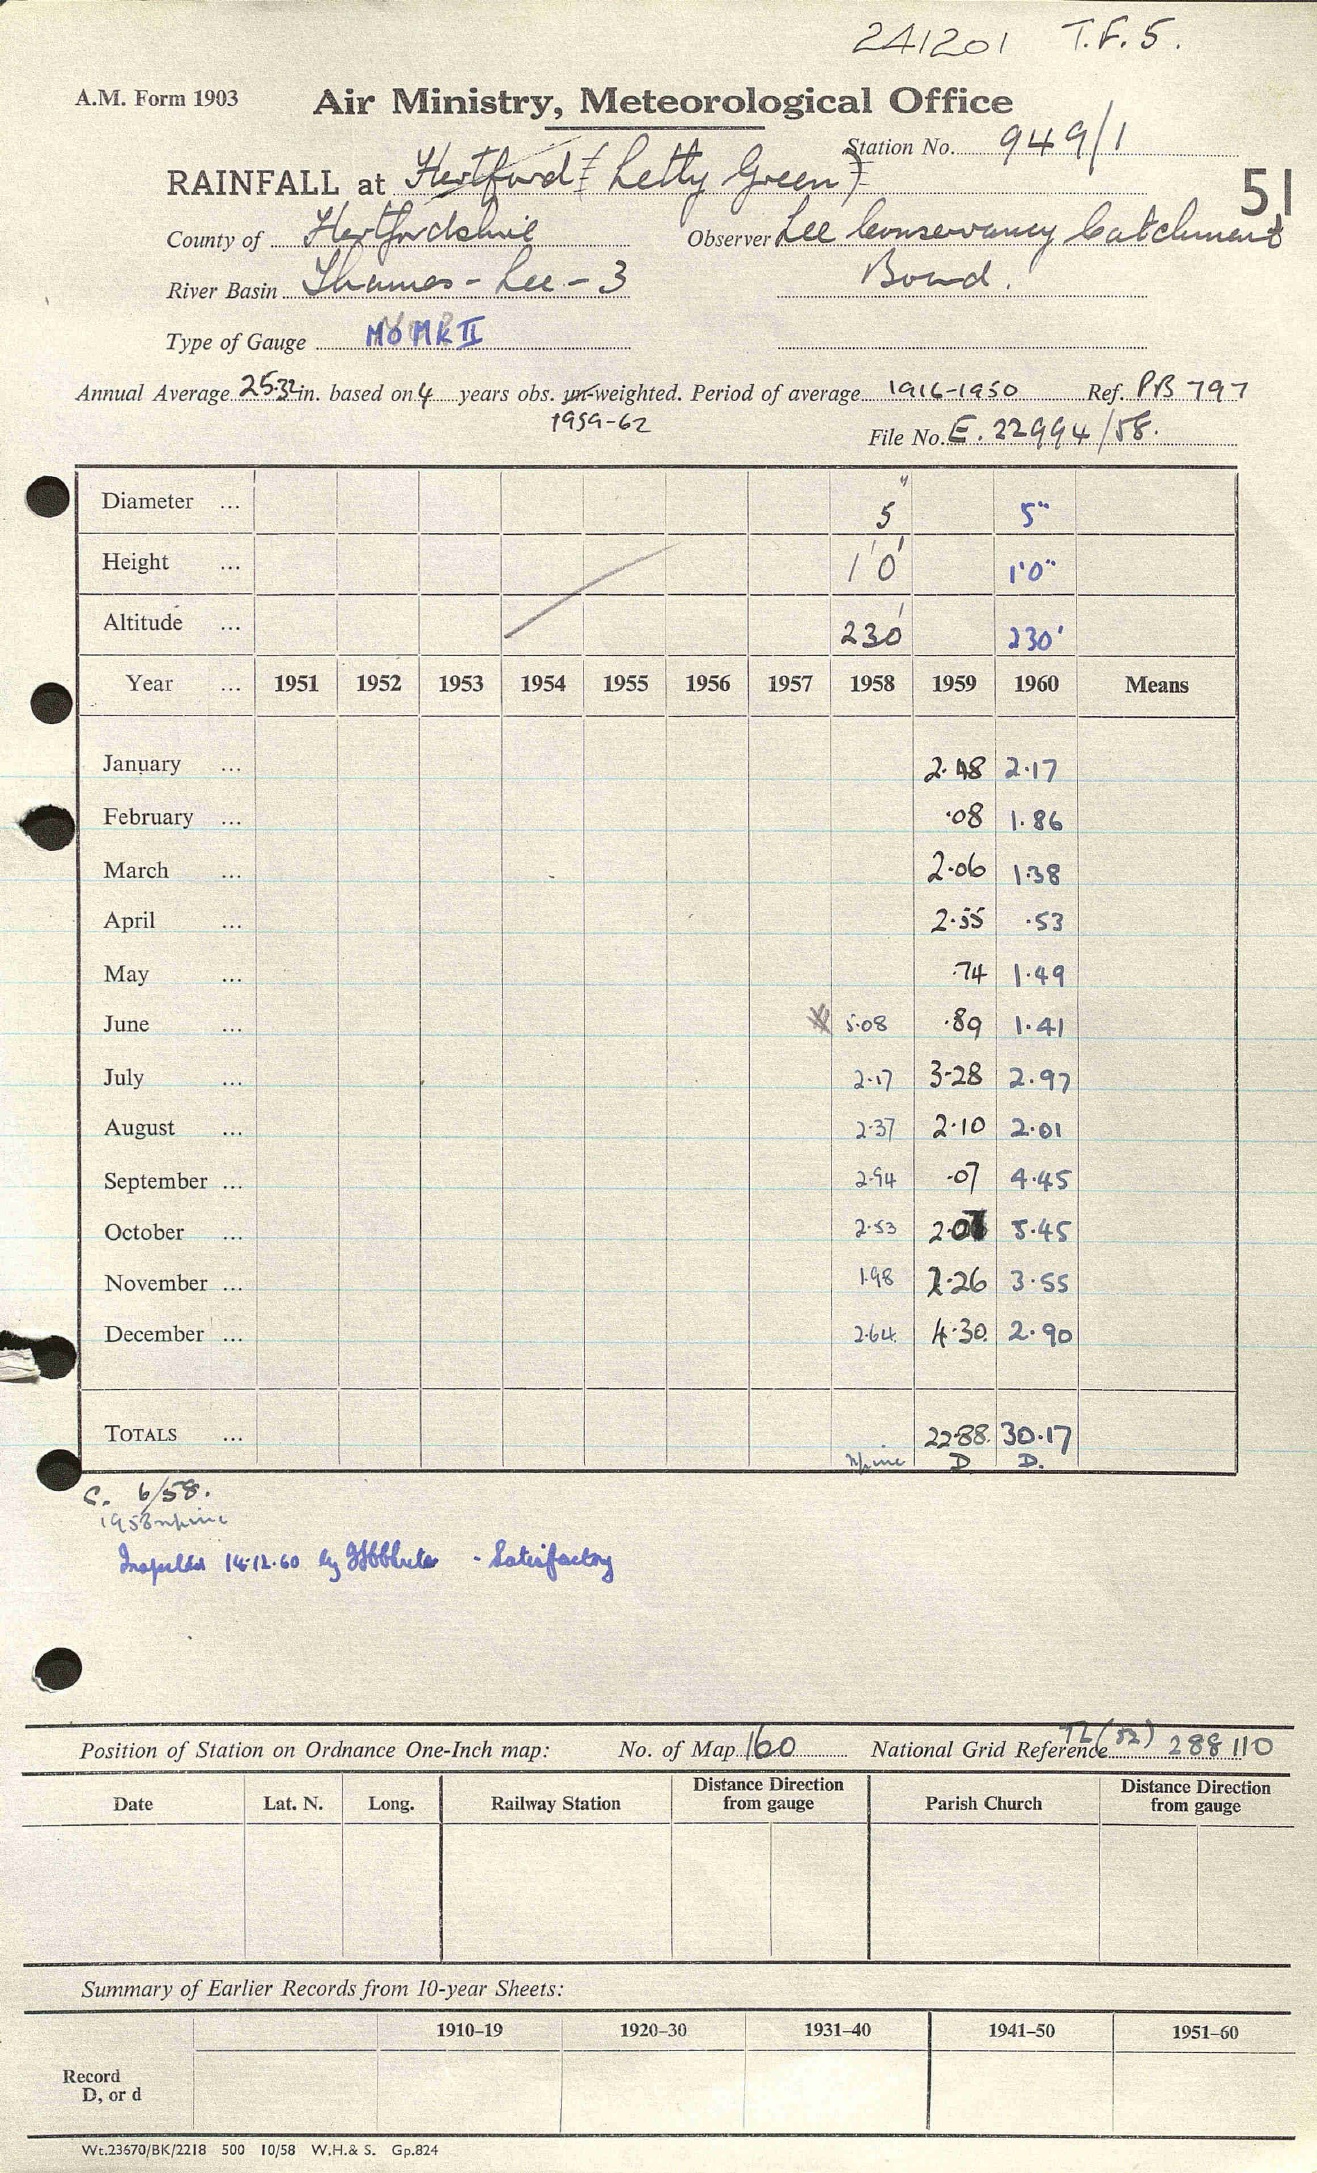 241201 T.F.5.
A.M. Form 1903 Air Ministry, Meteorological Office
Station No. 949/1
RAINFALL at Hertford (Letty Green)
51
County of Hertfordshire Observer Lee Conservancy Catchment
River Basin Thames - Lee - 3 Board.
Type of Gauge MO Mk II
Annual Average 25.32 in. based on 4 years obs. un-weighted. Period of average 1916-1950 Ref. PB 797
1959-62
File No. E. 22994/58.
Diameter ... 5" 5"
Height ... 1'0' 1'0"
Altitude ... 230' 230'
Year ... 1951 1952 1953 1954 1955 1956 1957 1958 1959 1960 Means
January ... 2.48 2.17
February ... .08 1.86
March ... 2.06 1.38
April ... 2.55 .53
May ... .74 1.49
June ... 5.08 .89 1.41
July ... 2.17 3.28 2.97
August ... 2.37 2.10 2.01
September ... 2.94 .07 4.45
October ... 2.53 2.07 5.45
November ... 1.98 2.26 3.55
December ... 2.64 4.30 2.90
TOTALS ... 22.88 30.17
D D.
C. 6/58.
1958
Inspected 14.12.60 by - Satisfactory
Position of Station on Ordnance One-Inch map: No. of Map 160 National Grid Reference TL (52) 288 110
Date Lat. N. Long. Railway Station Distance Direction from gauge Parish Church Distance Direction from gauge
Summary of Earlier Records from 10-year Sheets:
1910–19 1920–30 1931–40 1941–50 1951–60
Record
D, or d
Wt.23670/BK/2218 500 10/58 W.H.& S. Gp.824